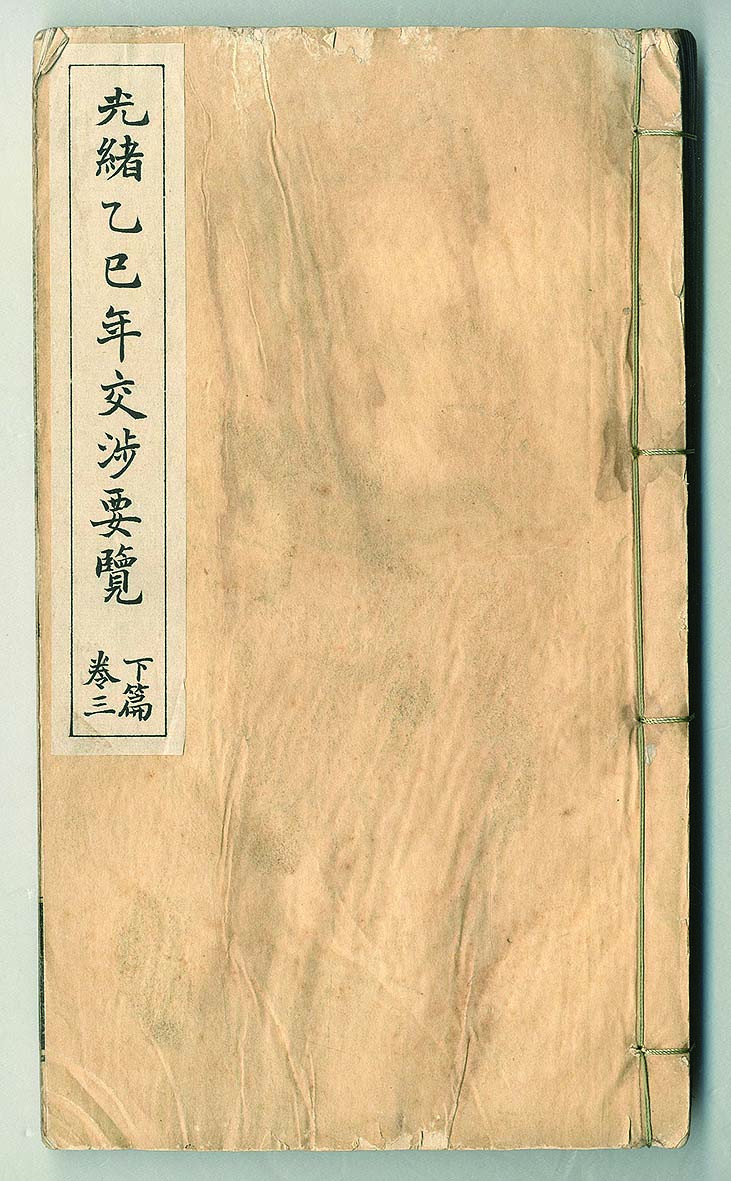 光緒乙巳年交涉要覽
下篇
卷三